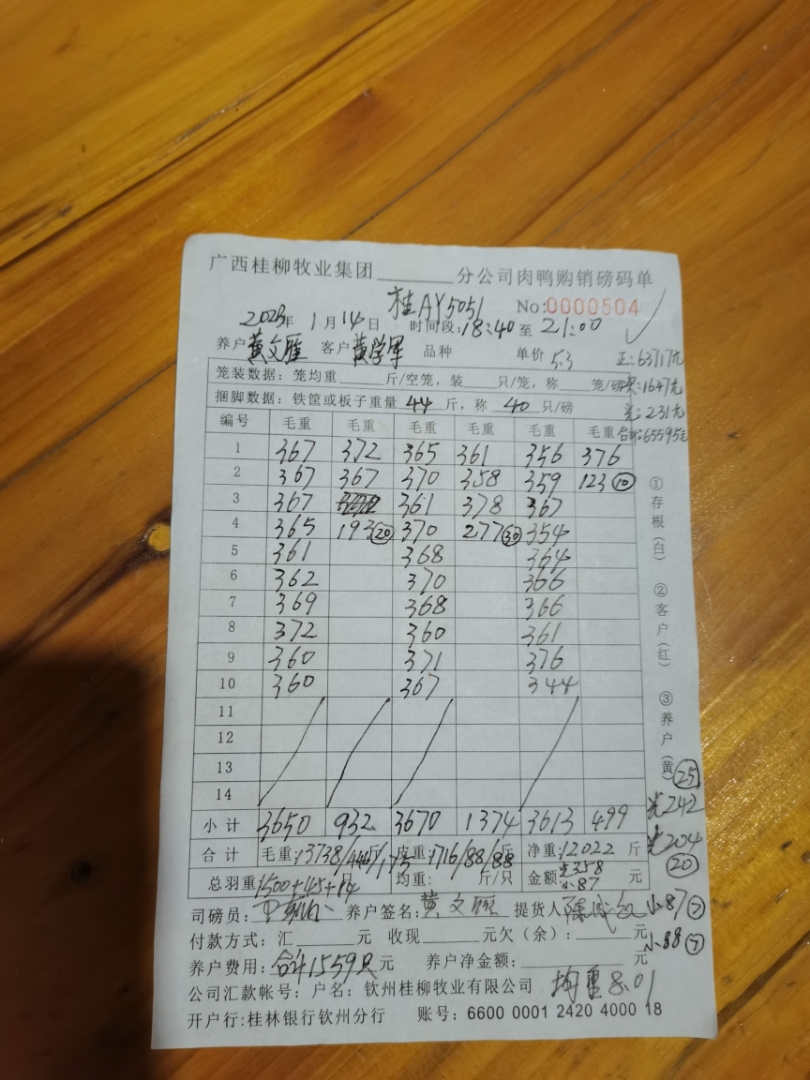 广西桂柳牧业集团______分公司肉鸭购销磅码单
桂AY5051 No:0000504
2023年 1月14日 时间段:18:40至21:00
养户黄文雁 客户黄学军 品种 单价 5.3 正:63717元
笼装数据:笼均重____斤/空笼,装____只/笼,称____笼/磅 1647元
捆脚数据:铁筐或板子重量44斤,称40只/磅 231元
编号 毛重 毛重 毛重 毛重 毛重 毛重 合计:65595元
1 367 372 365 361 356 376
2 367 367 370 358 359 123⑩
3 367 361 378 367
4 365 193⑳ 370 277㉚ 354
5 361 368 364
6 362 370 366
7 369 368 366
8 372 360 361
9 360 371 376
10 360 367 344
11
12
13
14
小计 3650 932 3670 1374 3613 499
合计 毛重:13738/446/175斤 皮重:1716/88/88斤 净重:12022斤
总羽重1500+45+14只 均重: 斤/只 金额: 358 元
小87
司磅员: 养户签名:黄文 提货人陈
付款方式:汇____元 收现____元欠(余):____元
养户费用:合计1559只元 养户净金额:______元
公司汇款帐号:户名:钦州桂柳牧业有限公司 均重8.01
开户行:桂林银行钦州分行 账号:6600 0001 2420 4000 18
①存根(白) ②客户(红) ③养户(黄)
㉕
光242
光204
⑳
小87⑦
小88⑦